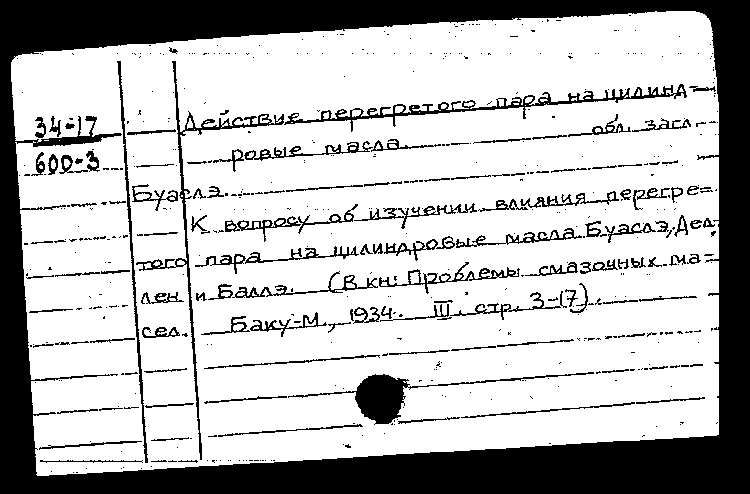 34-17
600-3
Действие перегретого пара на цилинд=
ровые масла. обл. загл.
Буаслэ.
К вопросу об изучении влияния перегре=
того пара на цилиндровые масла. Буаслэ, Дел
лен и Баллэ. (В кн: Проблемы смазочных ма=
сел. Баку-М., 1934. III. стр. 3-17).